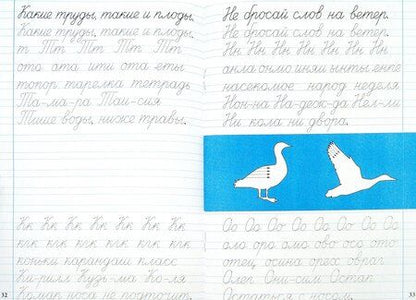 Какие труды, такие и плоды.
Какие труды, такие и плоды.
т Тт Тт Тт Тт
ото ата ити ота еты
топор тарелка тетрадь
Та-ма-ра Таи-сия
Тише воды, ниже травы.
Кк Кк Кк Кк Кк Кк Кк
кгк кгк кгк кгк кгк кгк
коньки карандаш класс
Ки-рилл Кузь-ма Ко-ля
Комар носа не подточит.
32
Не бросай слов на ветер.
Не бросай слов на ветер.
Нн Нн Нн Нн Нн Нн Нн
анла онмо иняи ынты енке
насекомое народ неделя
Нон-на На-деж-да Нел-ли
Ни кола ни двора.
Оо Оо Оо Оо Оо Оо Оо Оо
оло оро омо ово осо ото
отец осина орех овраг
Олег Они-сим Остап
Остаться с носом.
33